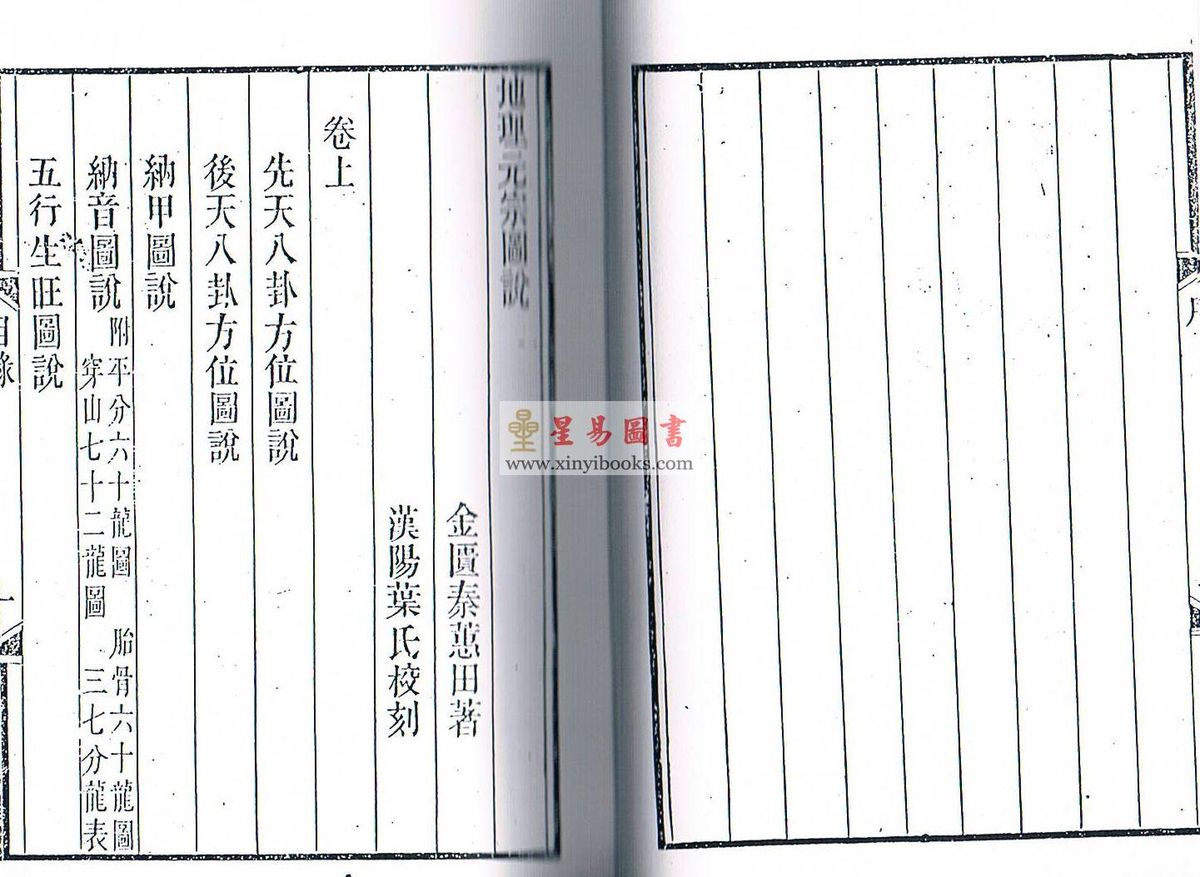 地理元宗圖說
金匱秦蕙田著
漢陽葉氏校刻
卷上
先天八卦方位圖說
後天八卦方位圖說
納甲圖說
納音圖說 附平分六十龍圖 胎骨六十龍圖
穿山七十二龍圖 三七分龍表
五行生旺圖說
目錄
星易圖書
www.xinyibooks.com